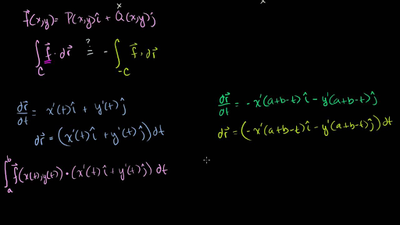 f⃗(x,y) = P(x,y)î + Q(x,y)ĵ
∫_C f⃗ · dr⃗ ≟ - ∫_{-C} f⃗ · dr⃗
dr⃗/dt = x'(t)î + y'(t)ĵ
dr⃗ = (x'(t)î + y'(t)ĵ)dt
∫_a^b f⃗(x(t),y(t)) • (x'(t)î + y'(t)ĵ) dt
dr⃗/dt = -x'(a+b-t)î - y'(a+b-t)ĵ
dr⃗ = (-x'(a+b-t)î - y'(a+b-t)ĵ)dt